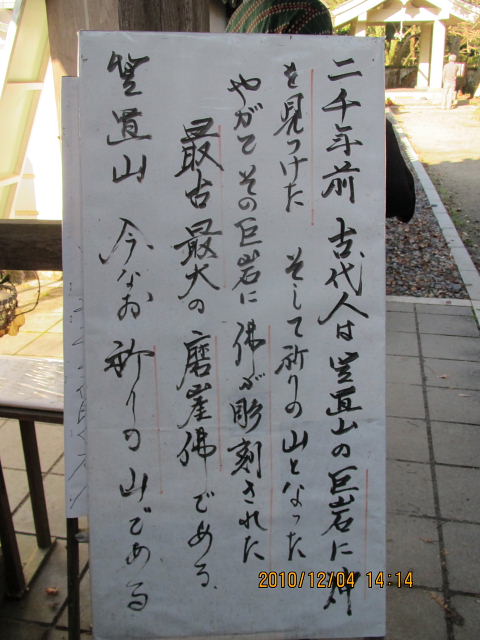 二千年前 古代人は笠置山の巨岩に神
を見つけた そして祈りの山となった
やがてその巨岩に佛が彫刻された
最古最大の磨崖佛である
笠置山 今なお祈りの山である
2010/12/04 14:14